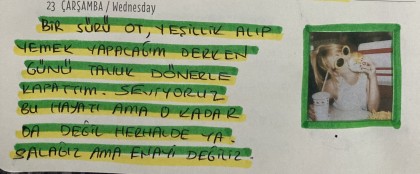 23 ÇARŞAMBA / Wednesday
BİR SÜRÜ OT, YEŞİLLİK ALIP
YEMEK YAPACAĞIM DERKEN
GÜNÜ TAVUK DÖNERLE
KAPATTIM. SEVİYORUZ
BU HAYATI AMA O KADAR
DA DEĞİL HERHALDE YA.
SALAĞIZ AMA ENAYİ DEĞİLİZ.